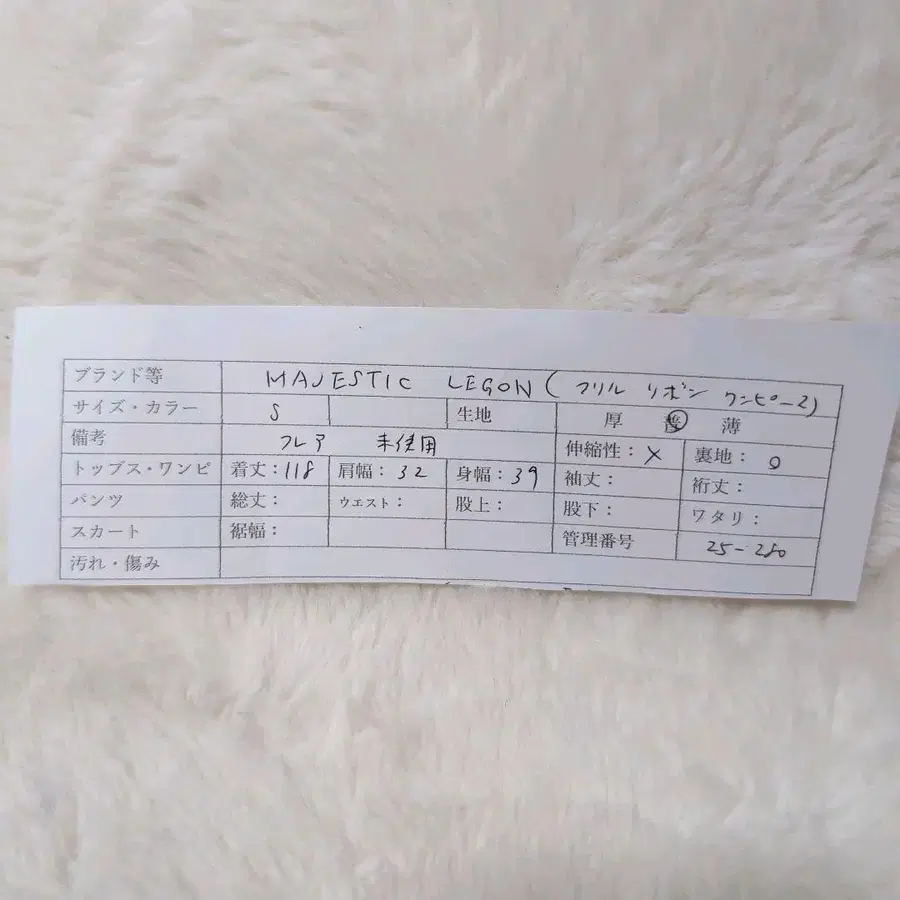 ブランド等 MAJESTIC LEGON (フリル リボン ワンピース)
サイズ・カラー S 生地 厚 普 薄
備考 フレア 未使用 伸縮性:× 裏地:○
トップス・ワンピ 着丈:118 肩幅:32 身幅:39 袖丈: 裄丈:
パンツ 総丈: ウエスト: 股上: 股下: ワタリ:
スカート 裾幅: 管理番号 25-280
汚れ・傷み